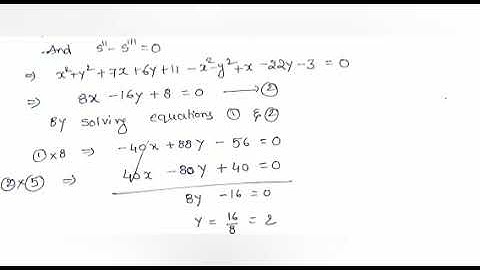 And S'' - S''' = 0
⇒ x² + y² + 7x + 6y + 11 - x² - y² + x - 22y - 3 = 0
⇒ 8x - 16y + 8 = 0 → ②
By solving equations ① & ②
① × 8 ⇒ -40x + 88y - 56 = 0
② × ⑤ ⇒ 40x - 80y + 40 = 0
8y - 16 = 0
y = 16/8 = 2